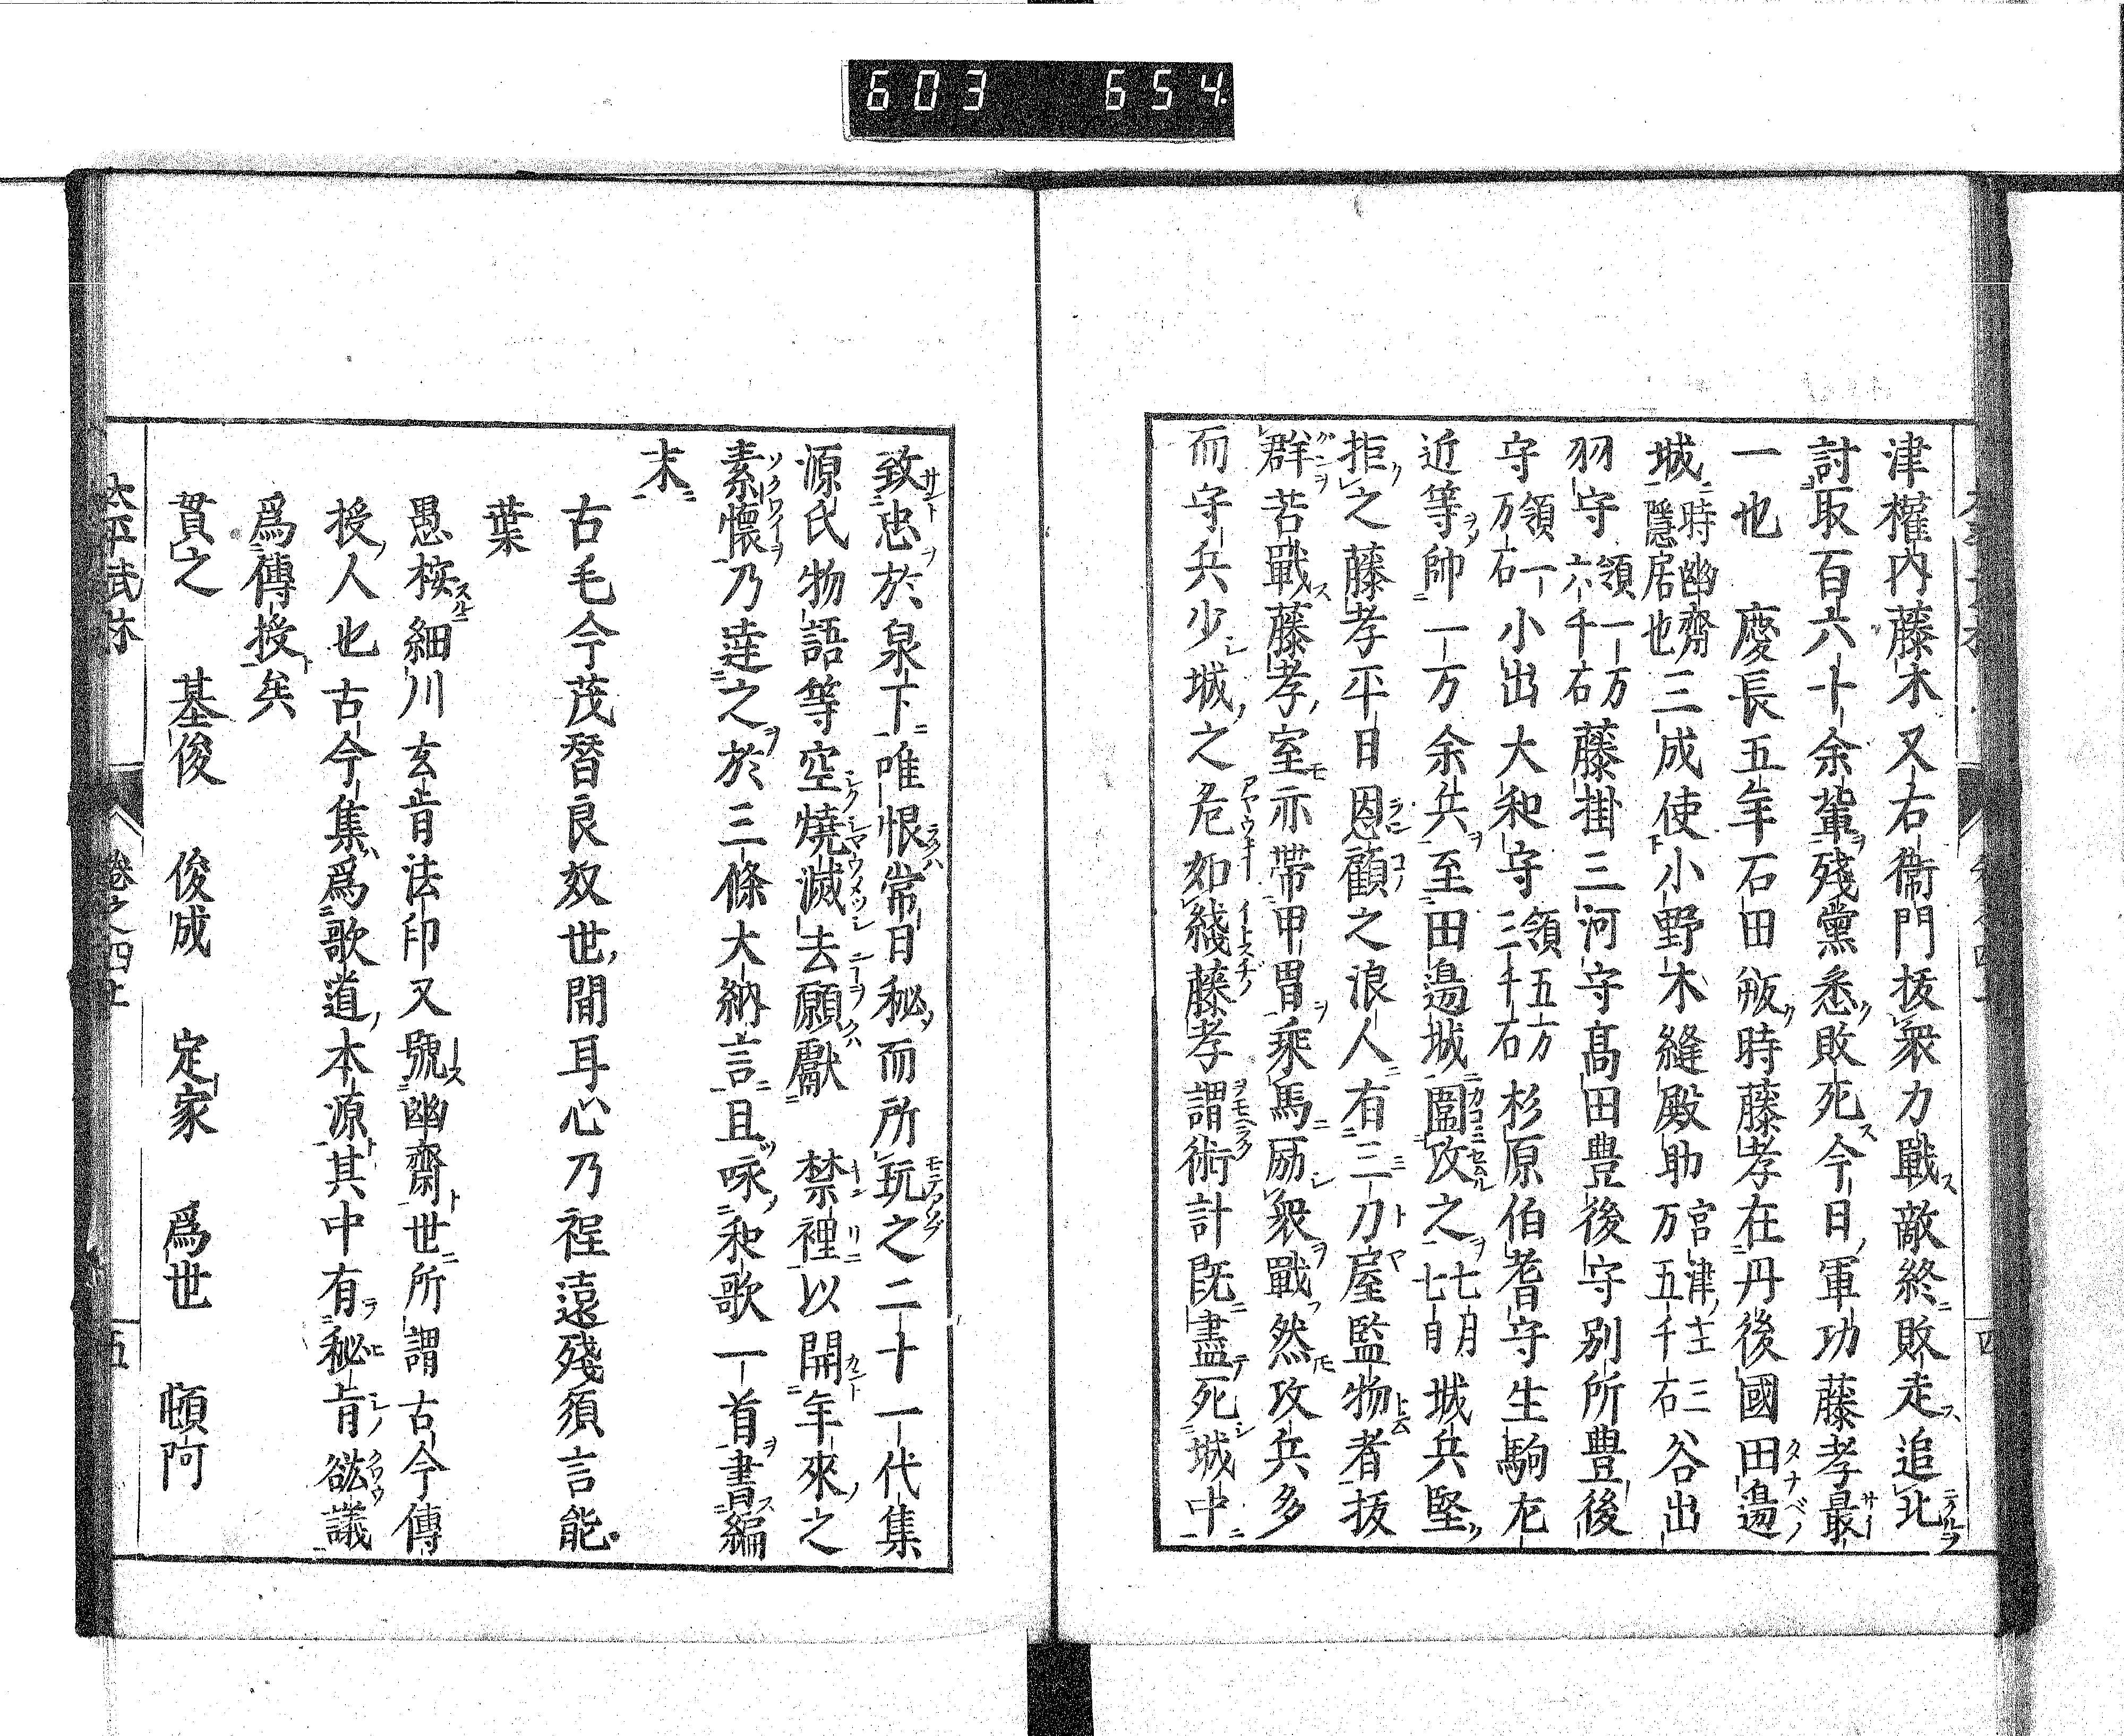 603 654
津權内藤木又右衞門抜衆力戰敵終敗走追北
討取百六十余軰殘黨悉敗死今日軍功藤孝最
一也 慶長五年石田叛時藤孝在丹後國田邉
城時幽齋隱居也三成使小野木縫殿助宮津主三万五千石谷出
羽守領一万六千石藤掛三河守高田豊後守别所豊後
守領一万石小出大和守領五万三千石杉原伯耆守生駒左
近等帥一万余兵至田邉城圍攻之七月七日城兵堅
拒之藤孝平日恩顧之浪人有三刀屋監物者抜
群苦戰藤孝室亦帯甲冑乘馬励衆戰然攻兵多
而守兵少城之危如綫藤孝謂術計既盡死城中
致忠於泉下唯恨常日秘而所玩之二十一代集
源氏物語等空燒滅去願獻 禁裡以開年來之
素懷乃達之於三條大納言且咏和歌一首書編
末
古毛今茂替良奴世間耳心乃程遠殘須言能
葉
愚桉細川玄旨法印又號幽齋世所謂古今傳
授人也古今集爲歌道本源其中有秘旨欱議
爲傳授矣
貫之 基俊 俊成 定家 爲世 頓阿
太平武林 卷之四上 五